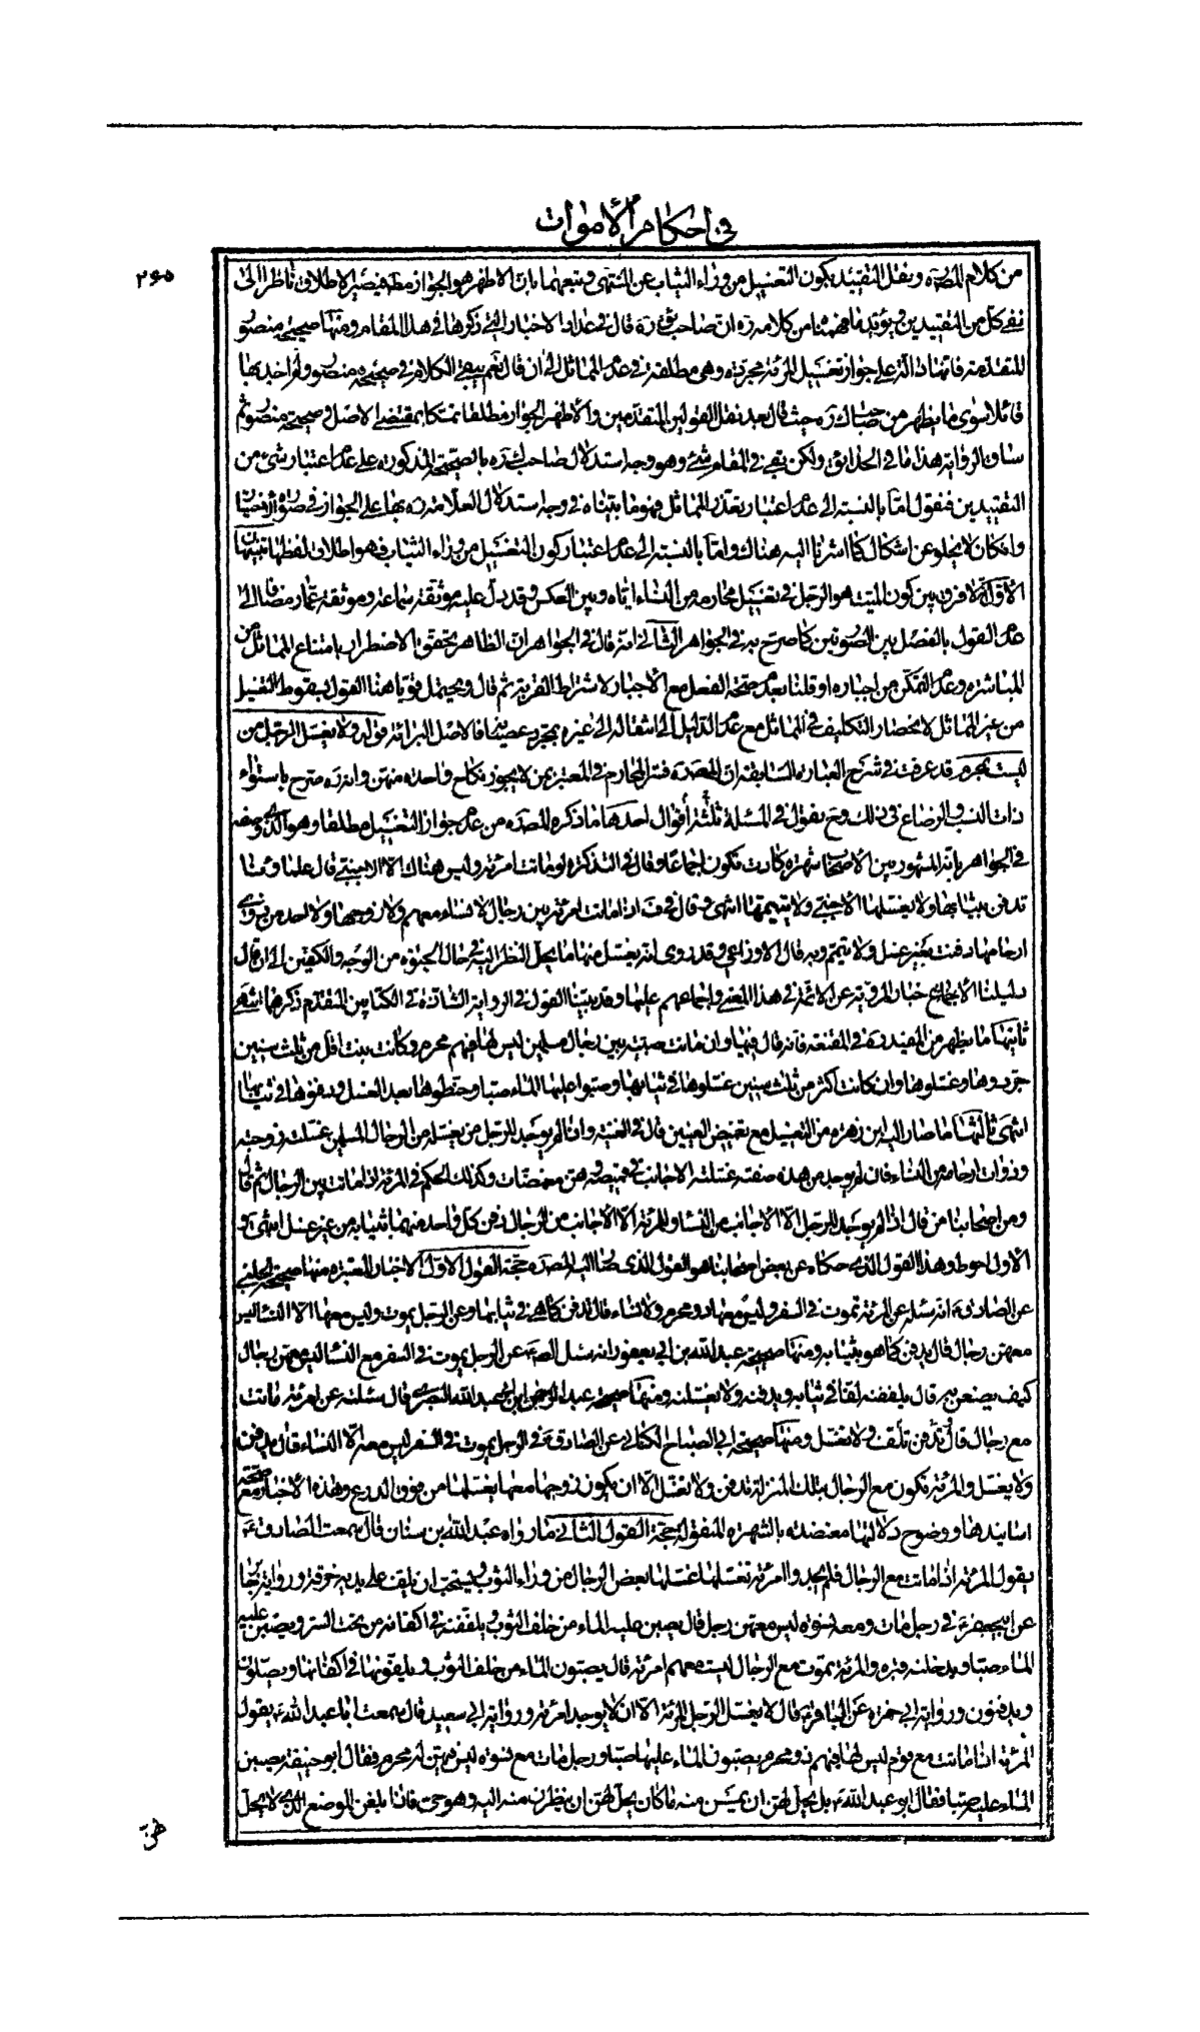 في احكام الأموات
٢٦٥
من كلام المص ره ونقل التقييد بكون التغسيل من وراء الثياب عن المنتهى وتبعهما بان الاظهر هو الجواز مطلقا فيصير الاطلاق ناظرا الى
نفي كل من التقييدين ويؤيد ما فهمناه من كلامه ره ان صاحب ك ره قال في عداد الاخبار التي ذكرها في هذا المقام ومنها صحيحة منصور
المتقدمة فانها دالة على جواز تغسيل المرئة مجردة وهي مطلقة في عدم المماثل الى ان قال نعم يبقى الكلام في صحيحة منصور ولم اجد بها
قائلا سوى ما يظهر من صاحب ك ره حيث قال بعد نقل القولين المتقدمين والأظهر الجواز مطلقا تمسكا بمقتضى الاصل وصحيحة منصور ثم
ساق الرواية هذا ما في الحدائق ولكن بقي في المقام شئ وهو وجه استدلال صاحب ك ره بالصحيحة المذكورة على عدم اعتبار شئ من
التقييدين فنقول اما بالنسبة الى عدم اعتبار تعذر المماثل فهو ما بيناه في وجه استدلال العلامة ره بها على الجواز في صورة الاختيار
وان كان لا يخلو عن اشكال كما اشرنا اليه هناك واما بالنسبة الى عدم اعتبار كون التغسيل من وراء الثياب فهو اطلاق لفظها تنبيهان
الأوّل لا فرق بين كون الميت هو الرجل في تغسيل محارمه من النساء اياه وبين العكس وقد دل عليه موثقة سماعة وموثقة عمار مضافا الى
عدم القول بالفصل بين الصورتين كما صرح به في الجواهر الثاني انه قال في الجواهر ان الظاهر تحقق الاضطرار بامتناع المماثل من
المباشرة وعدم التمكن من اجباره او قلنا بعدم صحة الفعل مع الأجبار لاشتراط القربة ثم قال ويحتمل قويا هنا القول بسقوط الغسيل
من غير المماثل لانحصار التكليف في المماثل مع عدم الدليل على انتقاله الى غيره بمجرد عصيانه فالاصل البرائة قوله ولا يغسل الرجل من
ليست بمحرم قد عرفت في شرح العبارة السابقة ان المص ره فسر المحارم في المعتبر بمن لا يجوز نكاح واحدة منهن وانه ره صرح باستواء
ذات النسب والرضاع في ذلك وح نقول في المسئلة ثلثة أقوال احدها ما ذكره المص ره من عدم جواز التغسيل مطلقا وهو الذي وصفه
في الجواهر بانه المشهور بين الأصحاب شهرة كادت تكون اجماعا وقال في التذكرة لو ماتت امرئة وليس هناك الا الاجنبي قال علمائنا
تدفن بثيابها ولا يغسلها الأجنبي ولا ييممها انتهى وقال في ف اذا ماتت امرئة بين رجال لا نساء معهم ولا زوجها ولا احد من ذوي
ارحامها دفنت بغير غسل ولا تيمم وبه قال الاوزاعي وقد روى انه يغسل منها ما يحل النظر اليه في حال الحيوة من الوجه والكفين الى ان قال
دليلنا الأخبار المروية عن الائمة في هذا المعنى واجماعهم عليها وقد بينا القول في الرواية الشاذة في الكتابين المتقدم ذكرهما انتهى
ثانيها ما يظهر من المفيد ره في المقنعة فانه قال فيها وان ماتت صبية بين رجال مسلمين ليس لها فيهم محرم وكانت بنت اقل من ثلث سنين
جردوها وغسلوها وان كانت اكثر من ثلث سنين غسلوها في ثيابها وصبوا عليها الماء صبا وحنطوها بعد الغسل ودفنوها في ثيابها
انتهى ثالثها ما صار اليه ابن زهرة من التغسيل مع تغميض العينين قال في الغنية واذا لم يوجد للرجل من يغسله من الرجال المسلمين غسلته زوجته
وذوات ارحامه من النساء فان لم يوجد من هذه صفته غسلته الاجانب في قميصه وهن مغمضات وكذلك الحكم في المرئة اذا ماتت بين الرجال ثم قال
ومن اصحابنا من قال اذا لم يوجد للرجل الا الاجانب من النساء وللمرئة الا الأجانب من الرجال دفن كل واحد منهما بثيابه من غير غسل انتهى و
الاول احوط وهذا القول الذي حكاه عن بعض اصحابنا هو القول الذي صار اليه المص ره حجة القول الاول الاخبار المعتبرة منها صحيحة الحلبي
عن الصادق ع انه سئله عن المرئة تموت في السفر وليس معها ذو محرم ولا نساء قال تدفن كما هي في ثيابها وعن الرجل يموت وليس معه الا النساء ليس
معهن رجال قال يدفن كما هو بثيابه ومنها صحيحة عبد الله بن ابي يعفور انه سئل الص ع عن الرجل يموت في السفر مع النساء ليس معهن رجال
كيف يصنعن به قال يلففنه لفا في ثيابه ويدفنه ولا يغسلنه ومنها صحيحة عبد الرحمن ابن ابي عبد الله البصري قال سئلته عن امرئة ماتت
مع رجال قال تلف وتدفن ولا تغسل ومنها صحيحة ابي الصباح الكناني عن الصادق ع في الرجل يموت في السفر ليس معه الا النساء قال يدفن
ولا يغسل والمرئة تكون مع الرجال بتلك المنزلة تدفن ولا تغسل الا ان يكون زوجها معها يغسلها من فوق الدرع وهذه الأخبار مع صحة
اسانيدها ووضوح دلالتها معتضدة بالشهرة المنقولة حجة القول الثاني ما رواه عبد الله بن سنان قال سمعت الصادق ع
يقول المرئة اذا ماتت مع الرجال فلم يجدوا امرئة تغسلها غسلها بعض الرجال من وراء الثوب ويستحب ان يلف على يديه خرقة ورواية جابر
عن ابي جعفر ع في رجل مات ومعه نسوة ليس معهن رجل قال يصببن عليه الماء من خلف الثوب ويلففنه في اكفانه من تحت الستر ويصلين عليه
صفا ويدخلنه قبره والمرئة تموت مع الرجال ليست معهم امرئة قال يصبون الماء من خلف الثوب ويلفونها في اكفانها ويصلون
ويدفنون ورواية ابي حمزة عن الباقر ع قال لا يغسل الرجل المرئة الا ان لا يوجد امرئة ورواية ابي سعيد قال سمعت ابا عبد الله ع يقول
المرئة اذا ماتت مع قوم ليس لها فيهم ذو محرم يصبون الماء عليها صبا ورجل مات مع نسوة ليس فيهن له محرم فقال ابو حنيفة يصببن
الماء عليه صبا فقال ابو عبد الله ع بل يحل لهن ان يمسسن منه ما كان يحل لهن ان ينظرن منه اليه وهو حي فاذا بلغن الموضع الذي لا يحل